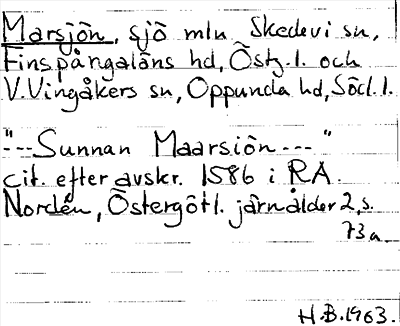 Marsjön, sjö mln Skedevi sn,
Finspångaläns hd, Östg.l. och
V.Vingåkers sn, Oppunda hd, Södl.l.
"--- Sunnan Maarsiön --- "
cit. efter avskr. 1586 i RA.
Nordén, Östergötl. järnålder 2, s.
73a.
H.B.1963.